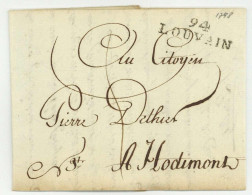 1798
94
LOUVAIN
Au Citoyen
Pierre Dethier
A Hodimont